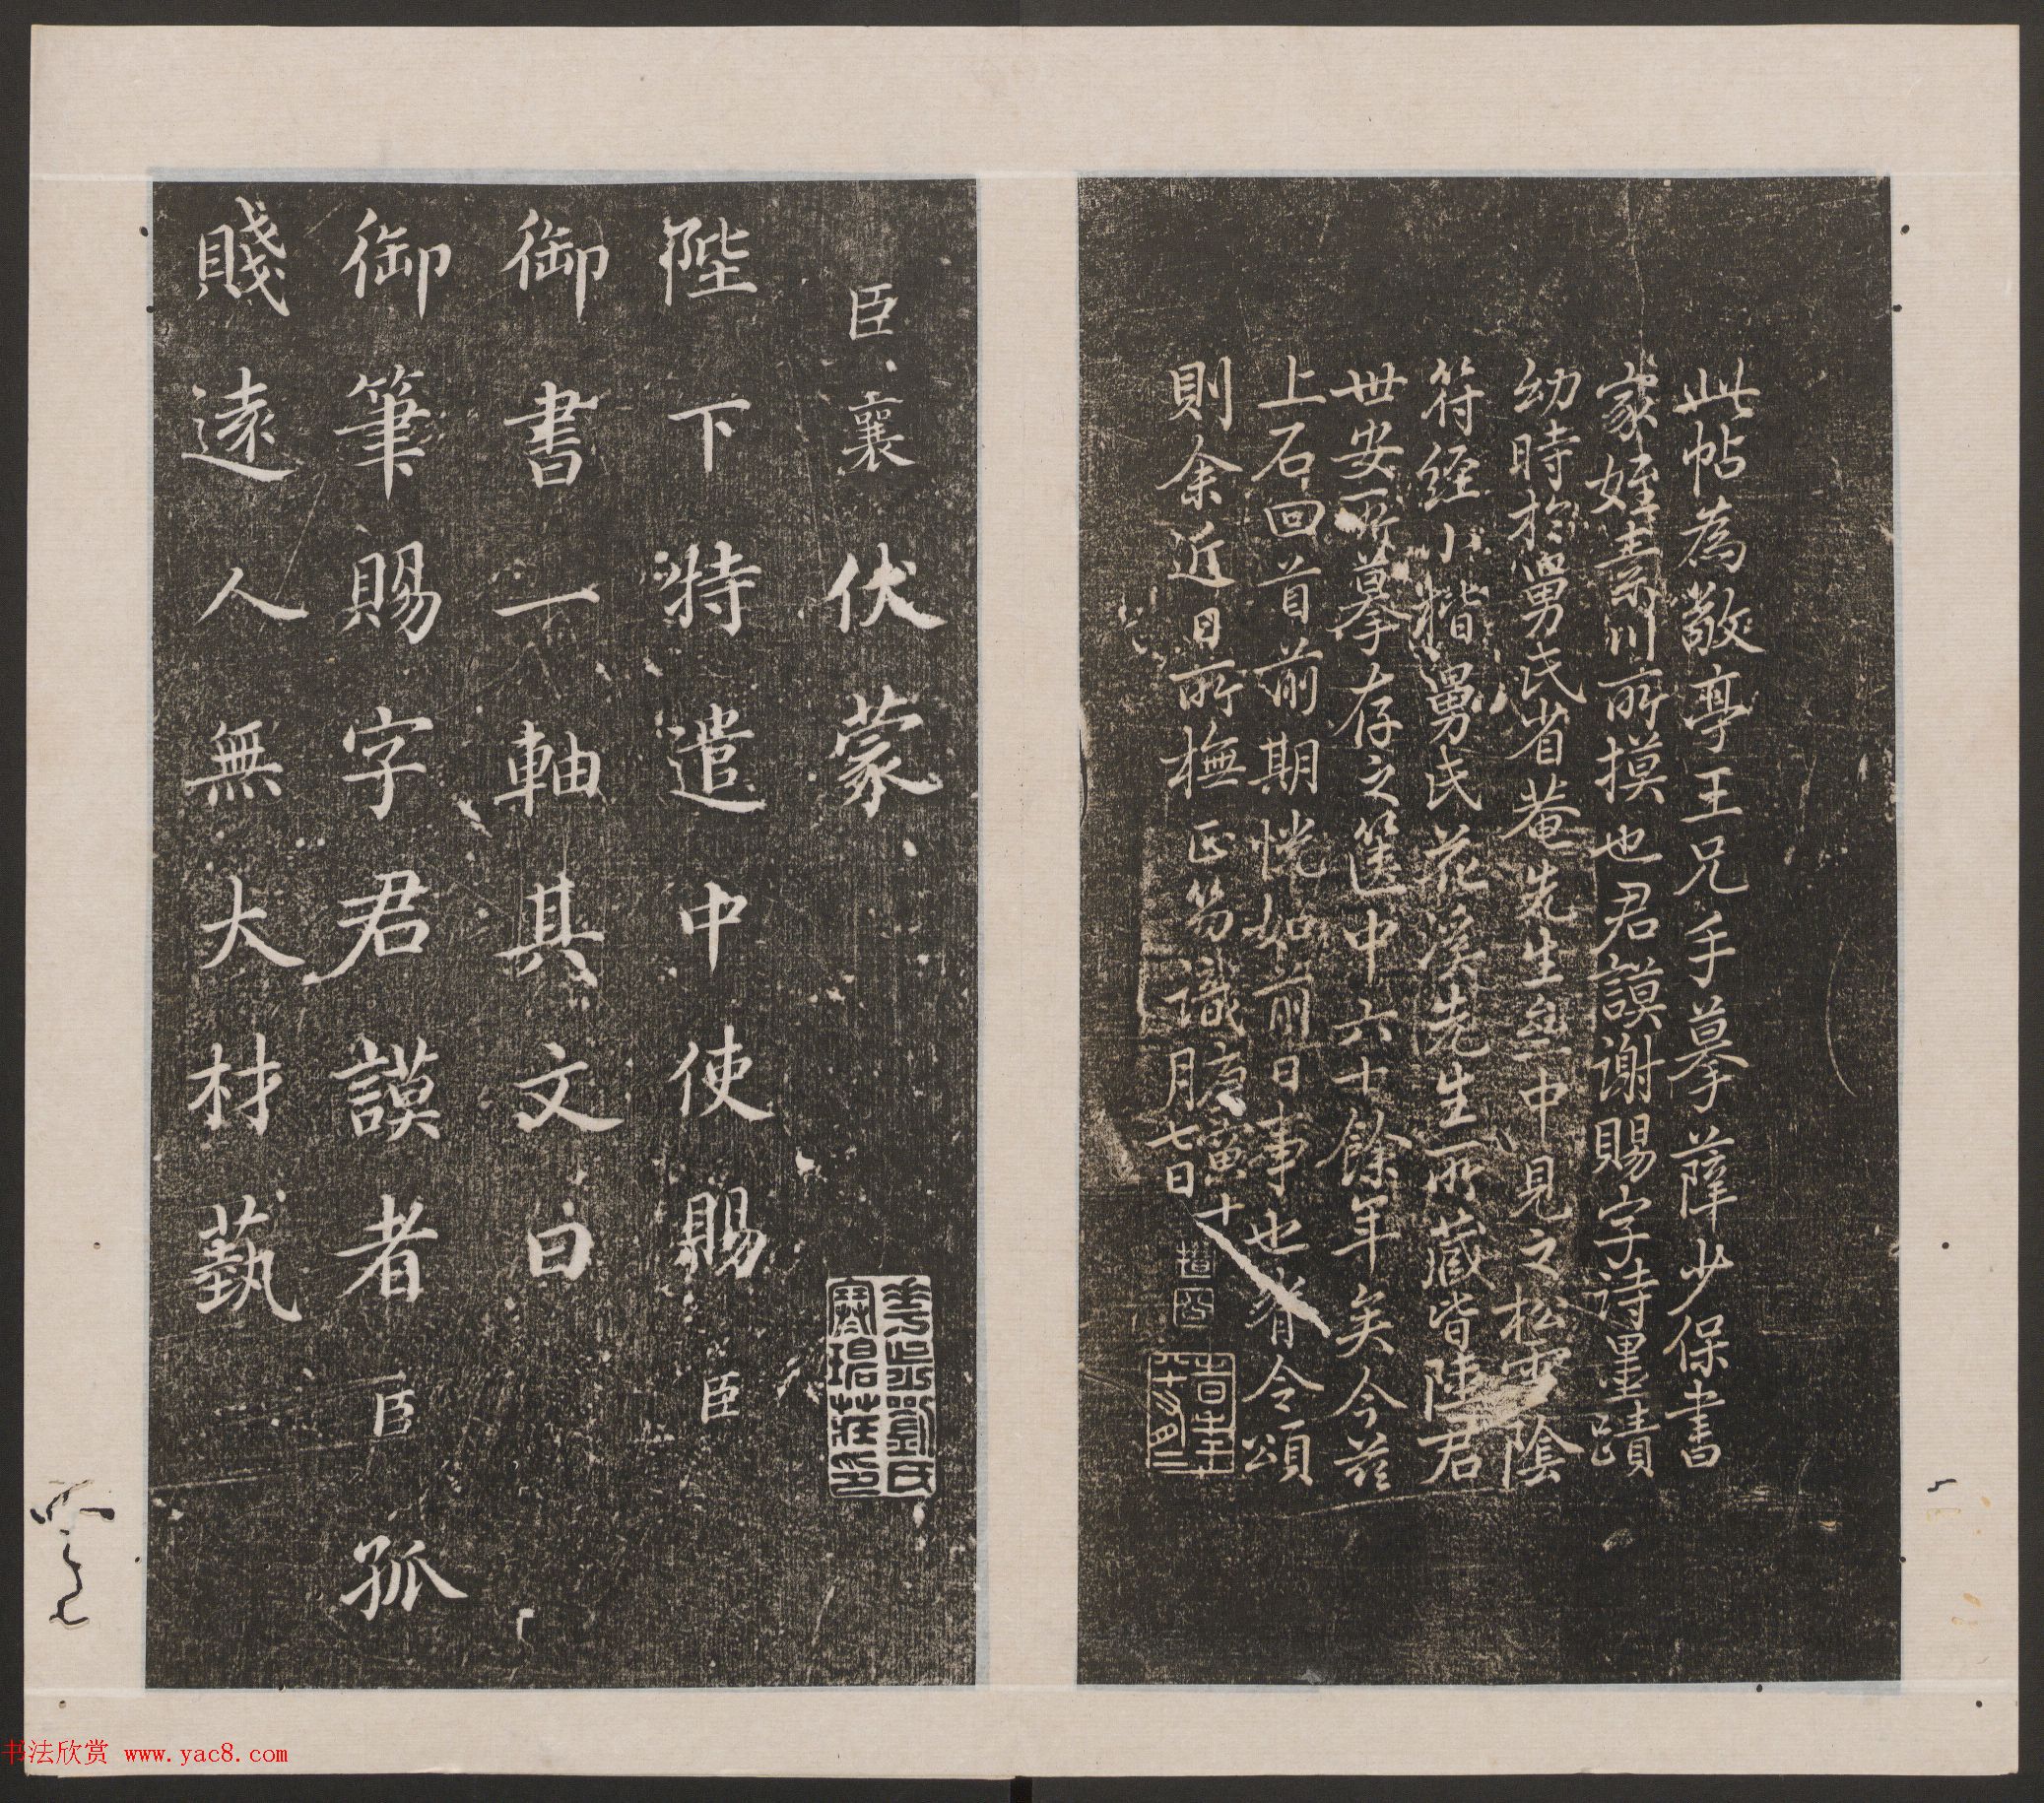 此帖為敬亭王兄手摹薛少保書
家姪素川所摸也君謨謝賜字詩墨蹟
幼時於舅氏省菴先生齋中見之松雪陰
符經小楷舅氏花溪先生所藏皆陸君
世安所摹存之篋中六十餘年矣今茲
上石回首前期恍如前日事也者令頌
則余近日所橅正笏識庚寅十
月七日
臣襄伏蒙
陛下特遣中使賜臣
御書一軸其文曰
御筆賜字君謨者臣孤
賤遠人無大材藝
书法欣赏 www.yac8.com